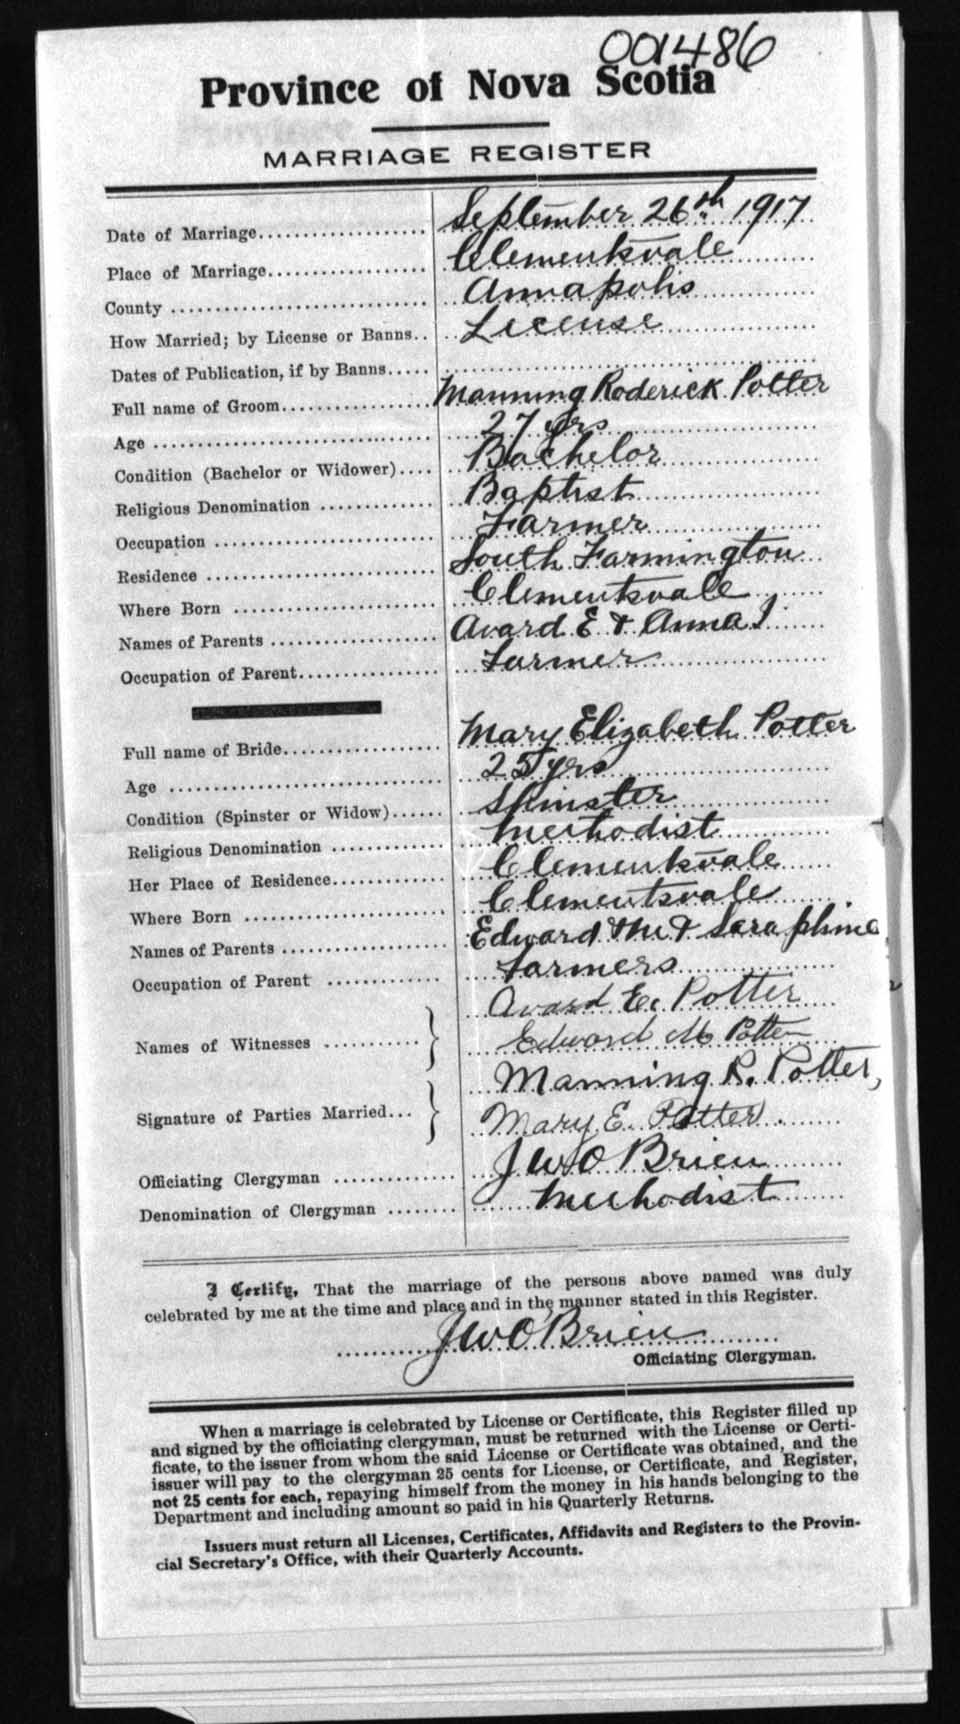 001486
Province of Nova Scotia
MARRIAGE REGISTER
Date of Marriage September 26th 1917
Place of Marriage Clementsvale
County Annapolis
How Married; by License or Banns License
Dates of Publication, if by Banns
Full name of Groom Manning Roderick Potter
Age 27 yrs
Condition (Bachelor or Widower) Bachelor
Religious Denomination Baptist
Occupation Farmer
Residence South Farmington
Where Born Clementsvale
Names of Parents Avard E & Anna J
Occupation of Parent Farmer
Full name of Bride Mary Elizabeth Potter
Age 25 yrs
Condition (Spinster or Widow) Spinster
Religious Denomination Methodist
Her Place of Residence Clementsvale
Where Born Clementsvale
Names of Parents Edward M & Seraphine
Occupation of Parent Farmers
Avard E. Potter
Names of Witnesses Edward M Potter
Manning R. Potter,
Signature of Parties Married Mary E. Potter
Officiating Clergyman J W O'Brien
Denomination of Clergyman Methodist
I Certify, That the marriage of the persons above named was duly
celebrated by me at the time and place and in the manner stated in this Register.
J W O'Brien
Officiating Clergyman.
When a marriage is celebrated by License or Certificate, this Register filled up
and signed by the officiating clergyman, must be returned with the License or Certi-
ficate, to the issuer from whom the said License or Certificate was obtained, and the
issuer will pay to the clergyman 25 cents for License, or Certificate, and Register,
not 25 cents for each, repaying himself from the money in his hands belonging to the
Department and including amount so paid in his Quarterly Returns.
Issuers must return all Licenses, Certificates, Affidavits and Registers to the Provin-
cial Secretary's Office, with their Quarterly Accounts.